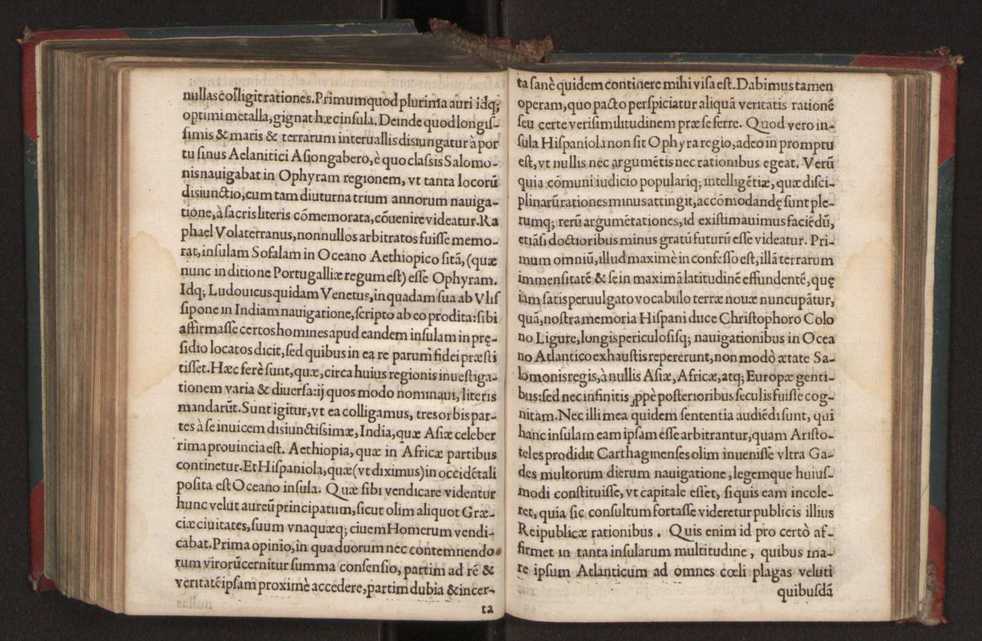 nullas colligit rationes. Primum quod plurima auri idq;
optimi metalla, gignat hæc insula. Deinde quod longis-
simis & maris & terrarum interuallis disiungatur à por
tu sinus Aelanitici Asiongabero, è quo classis Salomo-
nis nauigabat in Ophyram regionem, vt tanta locorũ
disiunctio, cum tam diuturna trium annorum nauiga-
tione, à sacris literis cõmemorata, cõuenire videatur. Ra
phael Volaterranus, nonnullos arbitratos fuisse memo-
rat, insulam Sofalam in Oceano Aethiopico sitã, (quæ
nunc in ditione Portugalliæ regum est) esse Ophyram.
Idq; Ludouicus quidam Venetus, in quadam sua ab Vlis
sipone in Indiam nauigatione, scripto ab eo prodita: sibi
affirmasse certos homines apud eandem insulam in præ-
sidio locatos dicit, sed quibus in ea re parum fidei præsti
tisset. Hæc ferè sunt, quæ, circa huius regionis inuestiga-
tionem varia & diuersa: ij quos modo nominaui, literis
mandarũt. Sunt igitur, vt ea colligamus, tres orbis par-
tes à se inuicem disiunctissimæ, India, quæ Asiæ celeber
rima prouincia est. Aethiopia, quæ in Africæ partibus
continetur. Et Hispaniola, quæ (vt diximus) in occidẽtali
posita est Oceano insula. Quæ sibi vendicare videntur
hunc velut aureũ principatum, sicut olim aliquot Græ-
ciæ ciuitates, suum vnaquæq; ciuem Homerum vendi-
cabat. Prima opinio, in qua duorum nec contemnendo
rum virorũ cernitur summa consensio, partim ad rẽ &
veritatẽ ipsam proximè accedere, partim dubia & incer-
ta
ta sanè quidem continere mihi visa est. Dabimus tamen
operam, quo pacto perspiciatur aliquã veritatis rationẽ
seu certe verisimilitudinem præ se ferre. Quod vero in-
sula Hispaniola non sit Ophyra regio, adeo in promptu
est, vt nullis nec argumẽtis nec rationibus egeat. Verũ
quia cõmuni iudicio populariq; intelligẽtiæ, quæ disci-
plinarũ rationes minus attingit, accõmodandę sunt ple-
rumq; rerũ argumẽtationes, id existimauimus faciẽdũ,
etiãsi doctioribus minus gratũ futurũ esse videatur. Pri-
mum omniũ, illud maximè in confesso est, illã terrarum
immensitatẽ & se in maximã latitudinẽ effundentẽ, quę
iam satis peruulgato vocabulo terræ nouæ nuncupãtur,
quã, nostra memoria Hispani duce Christophoro Colo
no Ligure, longis periculosisq; nauigationibus in Ocea
no Atlantico exhaustis repererunt, non modò ætate Sa-
lomonis regis, à nullis Asiæ, Africæ, atq; Europæ genti-
bus: sed nec infinitis ꝓpè posterioribus seculis fuisse cog-
nitam. Nec illi mea quidem sententia audiẽdi sunt, qui
hanc insulam eam ipsam esse arbitrantur, quam Aristo-
teles prodidit Carthaginenses olim inuenisse vltra Ga-
des multorum dierum nauigatione, legemque huius-
modi constituisse, vt capitale esset, si quis eam incole-
ret, quia sic consultum fortasse videretur publicis illius
Reipublicæ rationibus. Quis enim id pro certò af-
firmet in tanta insularum multitudine, quibus ma-
re ipsum Atlanticum ad omnes cœli plagas veluti
quibusdã